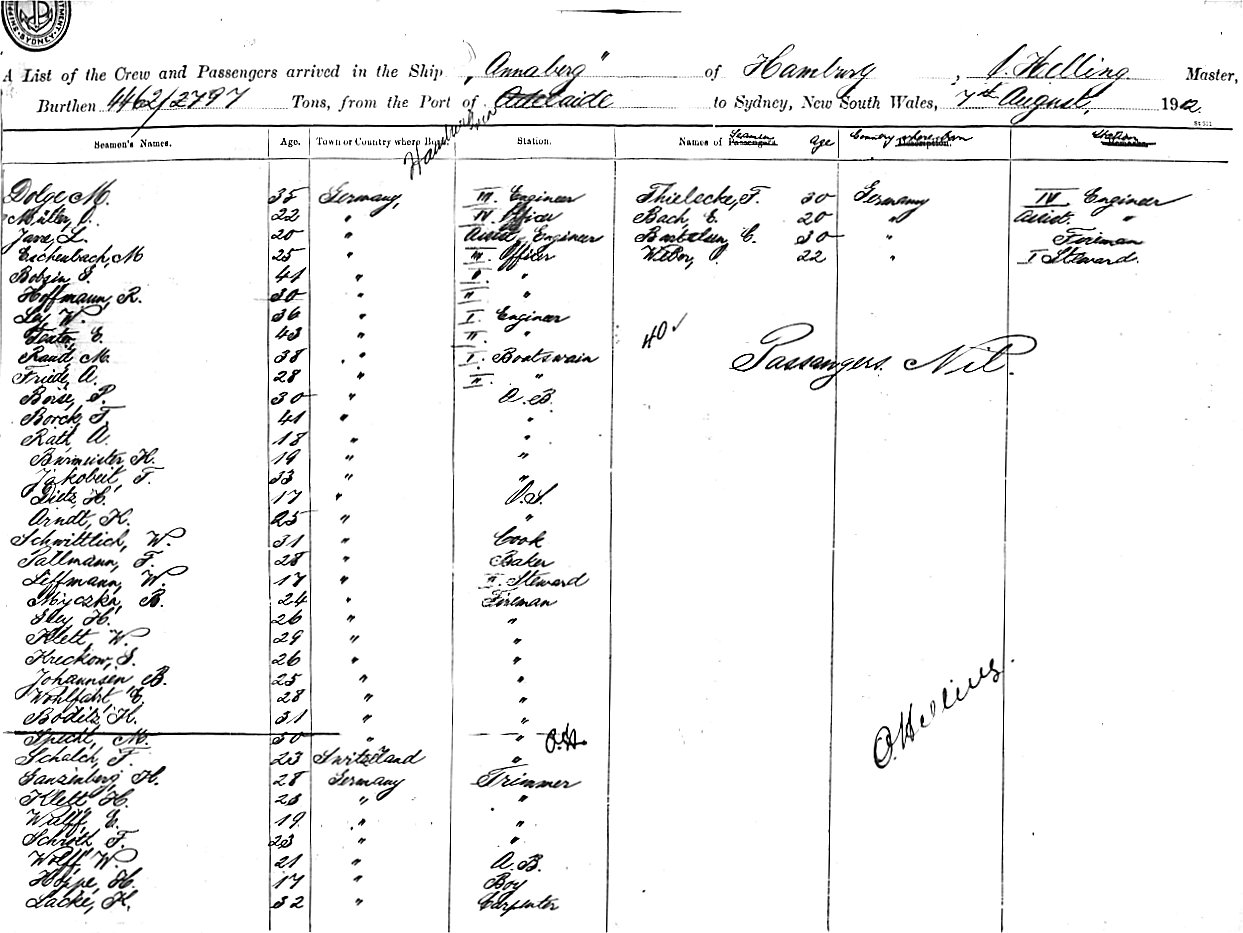 SYDNEY
A List of the Crew and Passengers arrived in the Ship "Annaberg" of Hamburg, O. Helling Master,
Burthen 4462/2797 Tons, from the Port of Adelaide to Sydney, New South Wales, 7th August, 1912.
Seamen's Names. Age. Town or Country where Born. Station. Names of Seamen Passengers Age Country where born Description. Station
Dolge M. 35 Germany, III. Engineer Thielecke, F. 30 Germany IV Engineer
Müller, O. 22 " IV. Officer Bach, E. 20 " Assist. "
20 " Assist. Engineer C. 30 " Fireman
Eschenbach, M 25 " III. Officer Weber, 22 " I Steward.
Bobzin 41 " II. "
Hoffmann, R. 30 " "
Ley W. 36 " I. Engineer
E. 43 " II. "
Raud, M. 38 " I. Boatswain
40 ✓
Passangers. Nil.
Friede, A. 28 " II. "
P. 30 " A. B.
Borck, F. 41 " "
Rath, A. 18 " "
Burmeister H. 19 " "
Jakobeit, F. 33 " "
Dietz, H. 17 " O. S.
Arndt, K. 25 " "
Schwittlich, W. 31 " Cook
Pallmann, F. 28 " Baker
Leffmann, W. 17 " II. Steward
Myczka, B. 24 " Fireman
H. 26 " "
Klett W. 29 " "
Kreckow, S. 26 " "
Johannsen B. 25 " "
Wohlfahrt, E. 28 " "
Boditz, K. 31 " "
Specht, M. 30 " " O.H.
Schalch, F. 23 Switzeland "
Ganzenberg, H. 28 Germany Trimmer
Klett H. 23 " "
Wulff E. 19 " "
Schroth F. 23 " "
Wolff W. 21 " A. B.
Hoppe, H. 17 " Boy
Lacke, K. 32 " Carpenter
O. Helling.